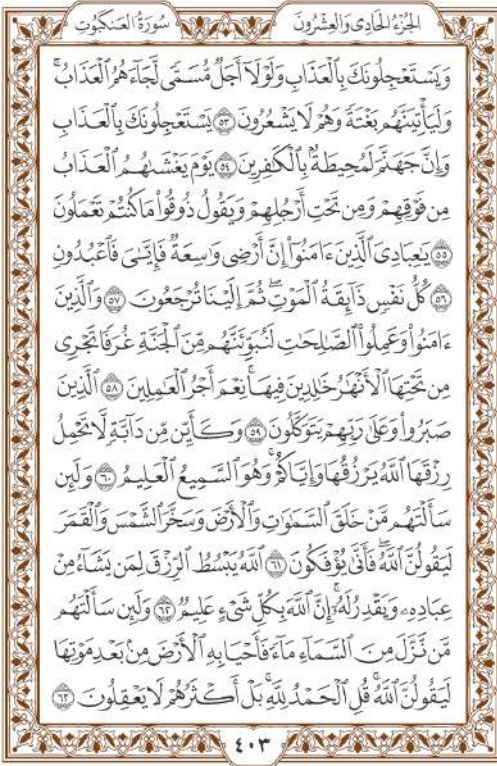 الجُزْءُ الحَادِى وَالعِشْرُونَ سُورَةُ العَنكَبُوتِ
وَيَسْتَعْجِلُونَكَ بِٱلْعَذَابِ وَلَوْلَآ أَجَلٌ مُّسَمًّى لَّجَآءَهُمُ ٱلْعَذَابُۚ
وَلَيَأْتِيَنَّهُم بَغْتَةً وَهُمْ لَا يَشْعُرُونَ ٥٣ يَسْتَعْجِلُونَكَ بِٱلْعَذَابِ
وَإِنَّ جَهَنَّمَ لَمُحِيطَةٌۢ بِٱلْكَٰفِرِينَ ٥٤ يَوْمَ يَغْشَىٰهُمُ ٱلْعَذَابُ
مِن فَوْقِهِمْ وَمِن تَحْتِ أَرْجُلِهِمْ وَيَقُولُ ذُوقُوا۟ مَا كُنتُمْ تَعْمَلُونَ
٥٥ يَٰعِبَادِىَ ٱلَّذِينَ ءَامَنُوٓا۟ إِنَّ أَرْضِى وَٰسِعَةٌ فَإِيَّٰىَ فَٱعْبُدُونِ
٥٦ كُلُّ نَفْسٍ ذَآئِقَةُ ٱلْمَوْتِۖ ثُمَّ إِلَيْنَا تُرْجَعُونَ ٥٧ وَٱلَّذِينَ
ءَامَنُوا۟ وَعَمِلُوا۟ ٱلصَّٰلِحَٰتِ لَنُبَوِّئَنَّهُم مِّنَ ٱلْجَنَّةِ غُرَفًا تَجْرِى
مِن تَحْتِهَا ٱلْأَنْهَٰرُ خَٰلِدِينَ فِيهَاۚ نِعْمَ أَجْرُ ٱلْعَٰمِلِينَ ٥٨ ٱلَّذِينَ
صَبَرُوا۟ وَعَلَىٰ رَبِّهِمْ يَتَوَكَّلُونَ ٥٩ وَكَأَيِّن مِّن دَآبَّةٍ لَّا تَحْمِلُ
رِزْقَهَا ٱللَّهُ يَرْزُقُهَا وَإِيَّاكُمْۚ وَهُوَ ٱلسَّمِيعُ ٱلْعَلِيمُ ٦٠ وَلَئِن
سَأَلْتَهُم مَّنْ خَلَقَ ٱلسَّمَٰوَٰتِ وَٱلْأَرْضَ وَسَخَّرَ ٱلشَّمْسَ وَٱلْقَمَرَ
لَيَقُولُنَّ ٱللَّهُۖ فَأَنَّىٰ يُؤْفَكُونَ ٦١ ٱللَّهُ يَبْسُطُ ٱلرِّزْقَ لِمَن يَشَآءُ مِنْ
عِبَادِهِۦ وَيَقْدِرُ لَهُۥٓۚ إِنَّ ٱللَّهَ بِكُلِّ شَىْءٍ عَلِيمٌ ٦٢ وَلَئِن سَأَلْتَهُم
مَّن نَّزَّلَ مِنَ ٱلسَّمَآءِ مَآءً فَأَحْيَا بِهِ ٱلْأَرْضَ مِنۢ بَعْدِ مَوْتِهَا
لَيَقُولُنَّ ٱللَّهُۚ قُلِ ٱلْحَمْدُ لِلَّهِۚ بَلْ أَكْثَرُهُمْ لَا يَعْقِلُونَ ٦٣
٤٠٣